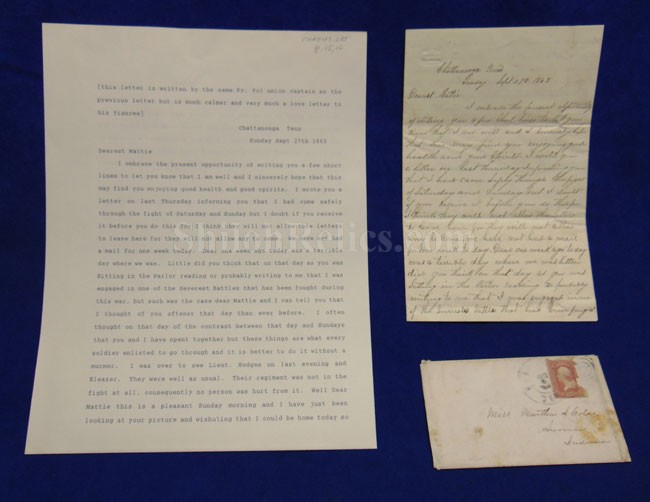 [this letter is written by the same Ky. Vol union captain as the
previous letter but is much calmer and very much a love letter to
his
Chattanooga Tenn
Sunday Sept 27th 1863
Dearest Mattie
I embrace the present opportunity of writing you a few short
lines to let you know that I am well and I sincerely hope that this
may find you enjoying good health and good spirits. I wrote you a
letter on last Thursday informing you that I had come safely
through the fight of Saturday and Sunday but I doubt if you receive
it before you do this for I think they will not allow the letters
to leave here for they will not
a mail for one week today. Dear one week ago today was a terrible
day where we was. Little did you think that on that day as you was
Sitting in the Parlor reading or probably writing to me that I was
engaged in one of the Severest Battles that has been fought during
this war. but such was the case dear Mattie and I can tell you that
I thought of you oftener that day than ever before. I often
thought on that day of the contrast between that day and Sundays
that you and I have spent together but these things are what every
soldier enlisted to go through and it is better to do it without a
murmer. I was over to see Lieut. Hodges on last evening and
Eleazor. They were well as usual. Their regiment was not in the
fight at all, consequently no person was hurt from it. Well Dear
Mattie this is a pleasant Sunday morning and I have just been
looking at your picture and wishing that I could be home today so
Chattanooga Tenn
Sunday Sept 27th 1863
Dearest Mattie
I embrace the present opportunity
of writing you a few short lines to let you
know that I am well and I sincerely hope
that this may find you enjoying good
health and good Spirits. I wrote you
a letter on last Thursday informing you
that I had come safely through the fight
of Saturday and Sunday but I doubt
if you receive it before you do this for
I think they will not allow the letters
to leave here for they will not
a mail
for one week today. Dear one week ago today
was a terrible day where we was Little
did you think on that day as you was
Sitting in the Parlor reading or probably
writing to me that I was engaged in one
of the Severest Battles that has been fought
Miss Martha
Indiana
ShilohRelics.com